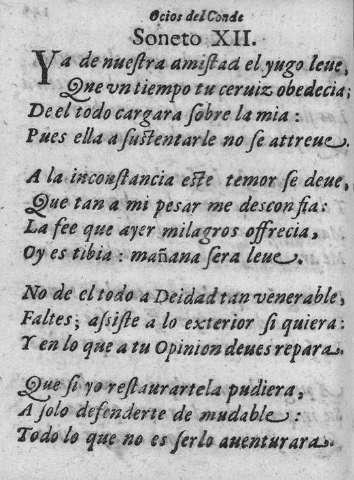 Ocios del Conde
Soneto XII.
Ya de nuestra amistad el yugo leue,
Que vn tiempo tu ceruiz obedecia;
De el todo cargara sobre la mia:
Pues ella a sustentarle no se attreue.
A la inconstancia este temor se deue,
Que tan a mi pesar me desconfia:
La fee que ayer milagros offrecia,
Oy es tibia: mañana sera leue.
No de el todo a Deidad tan venerable,
Faltes; assiste a lo exterior si quiera:
Y en lo que a tu Opinion deues repara.
Que si yo restaurartela pudiera,
A solo defenderte de mudable:
Todo lo que no es serlo auenturara.